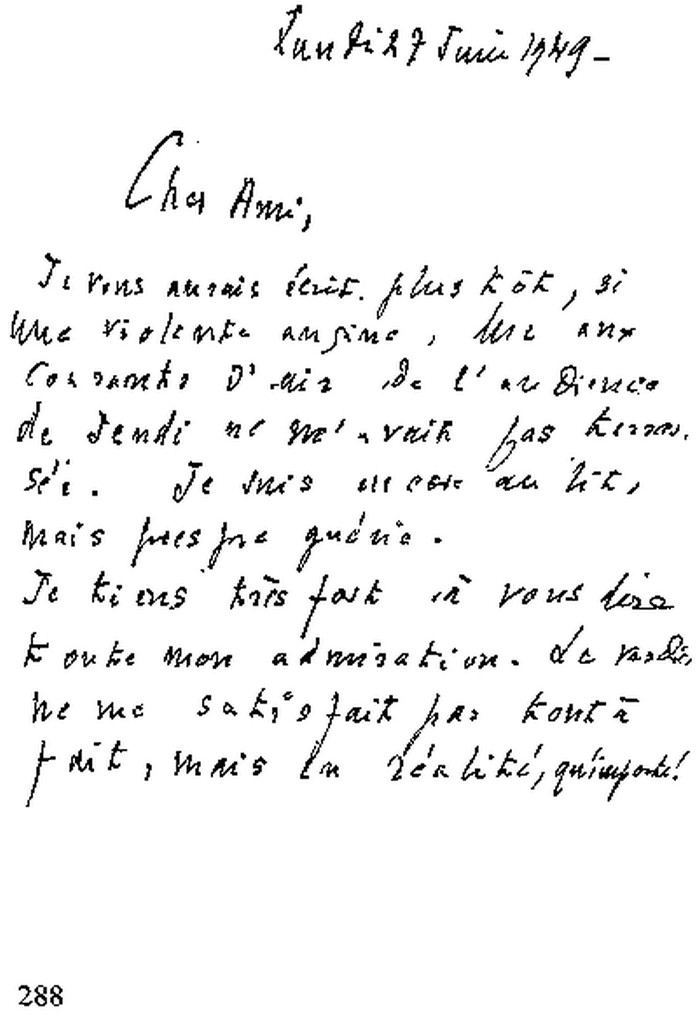 Lundi 27 Juin 1949 -
Cher Ami,
Je vous aurais écrit plus tôt, si
une violente angine, due aux
courants d'air de l'audience
de Jeudi ne m'avait pas terras-
sée. Je suis encore au lit,
mais presque guérie.
Je tiens très fort à vous dire
toute mon admiration. Le verdict
ne me satisfait pas tout à
fait, mais en réalité, qu'importe!
288